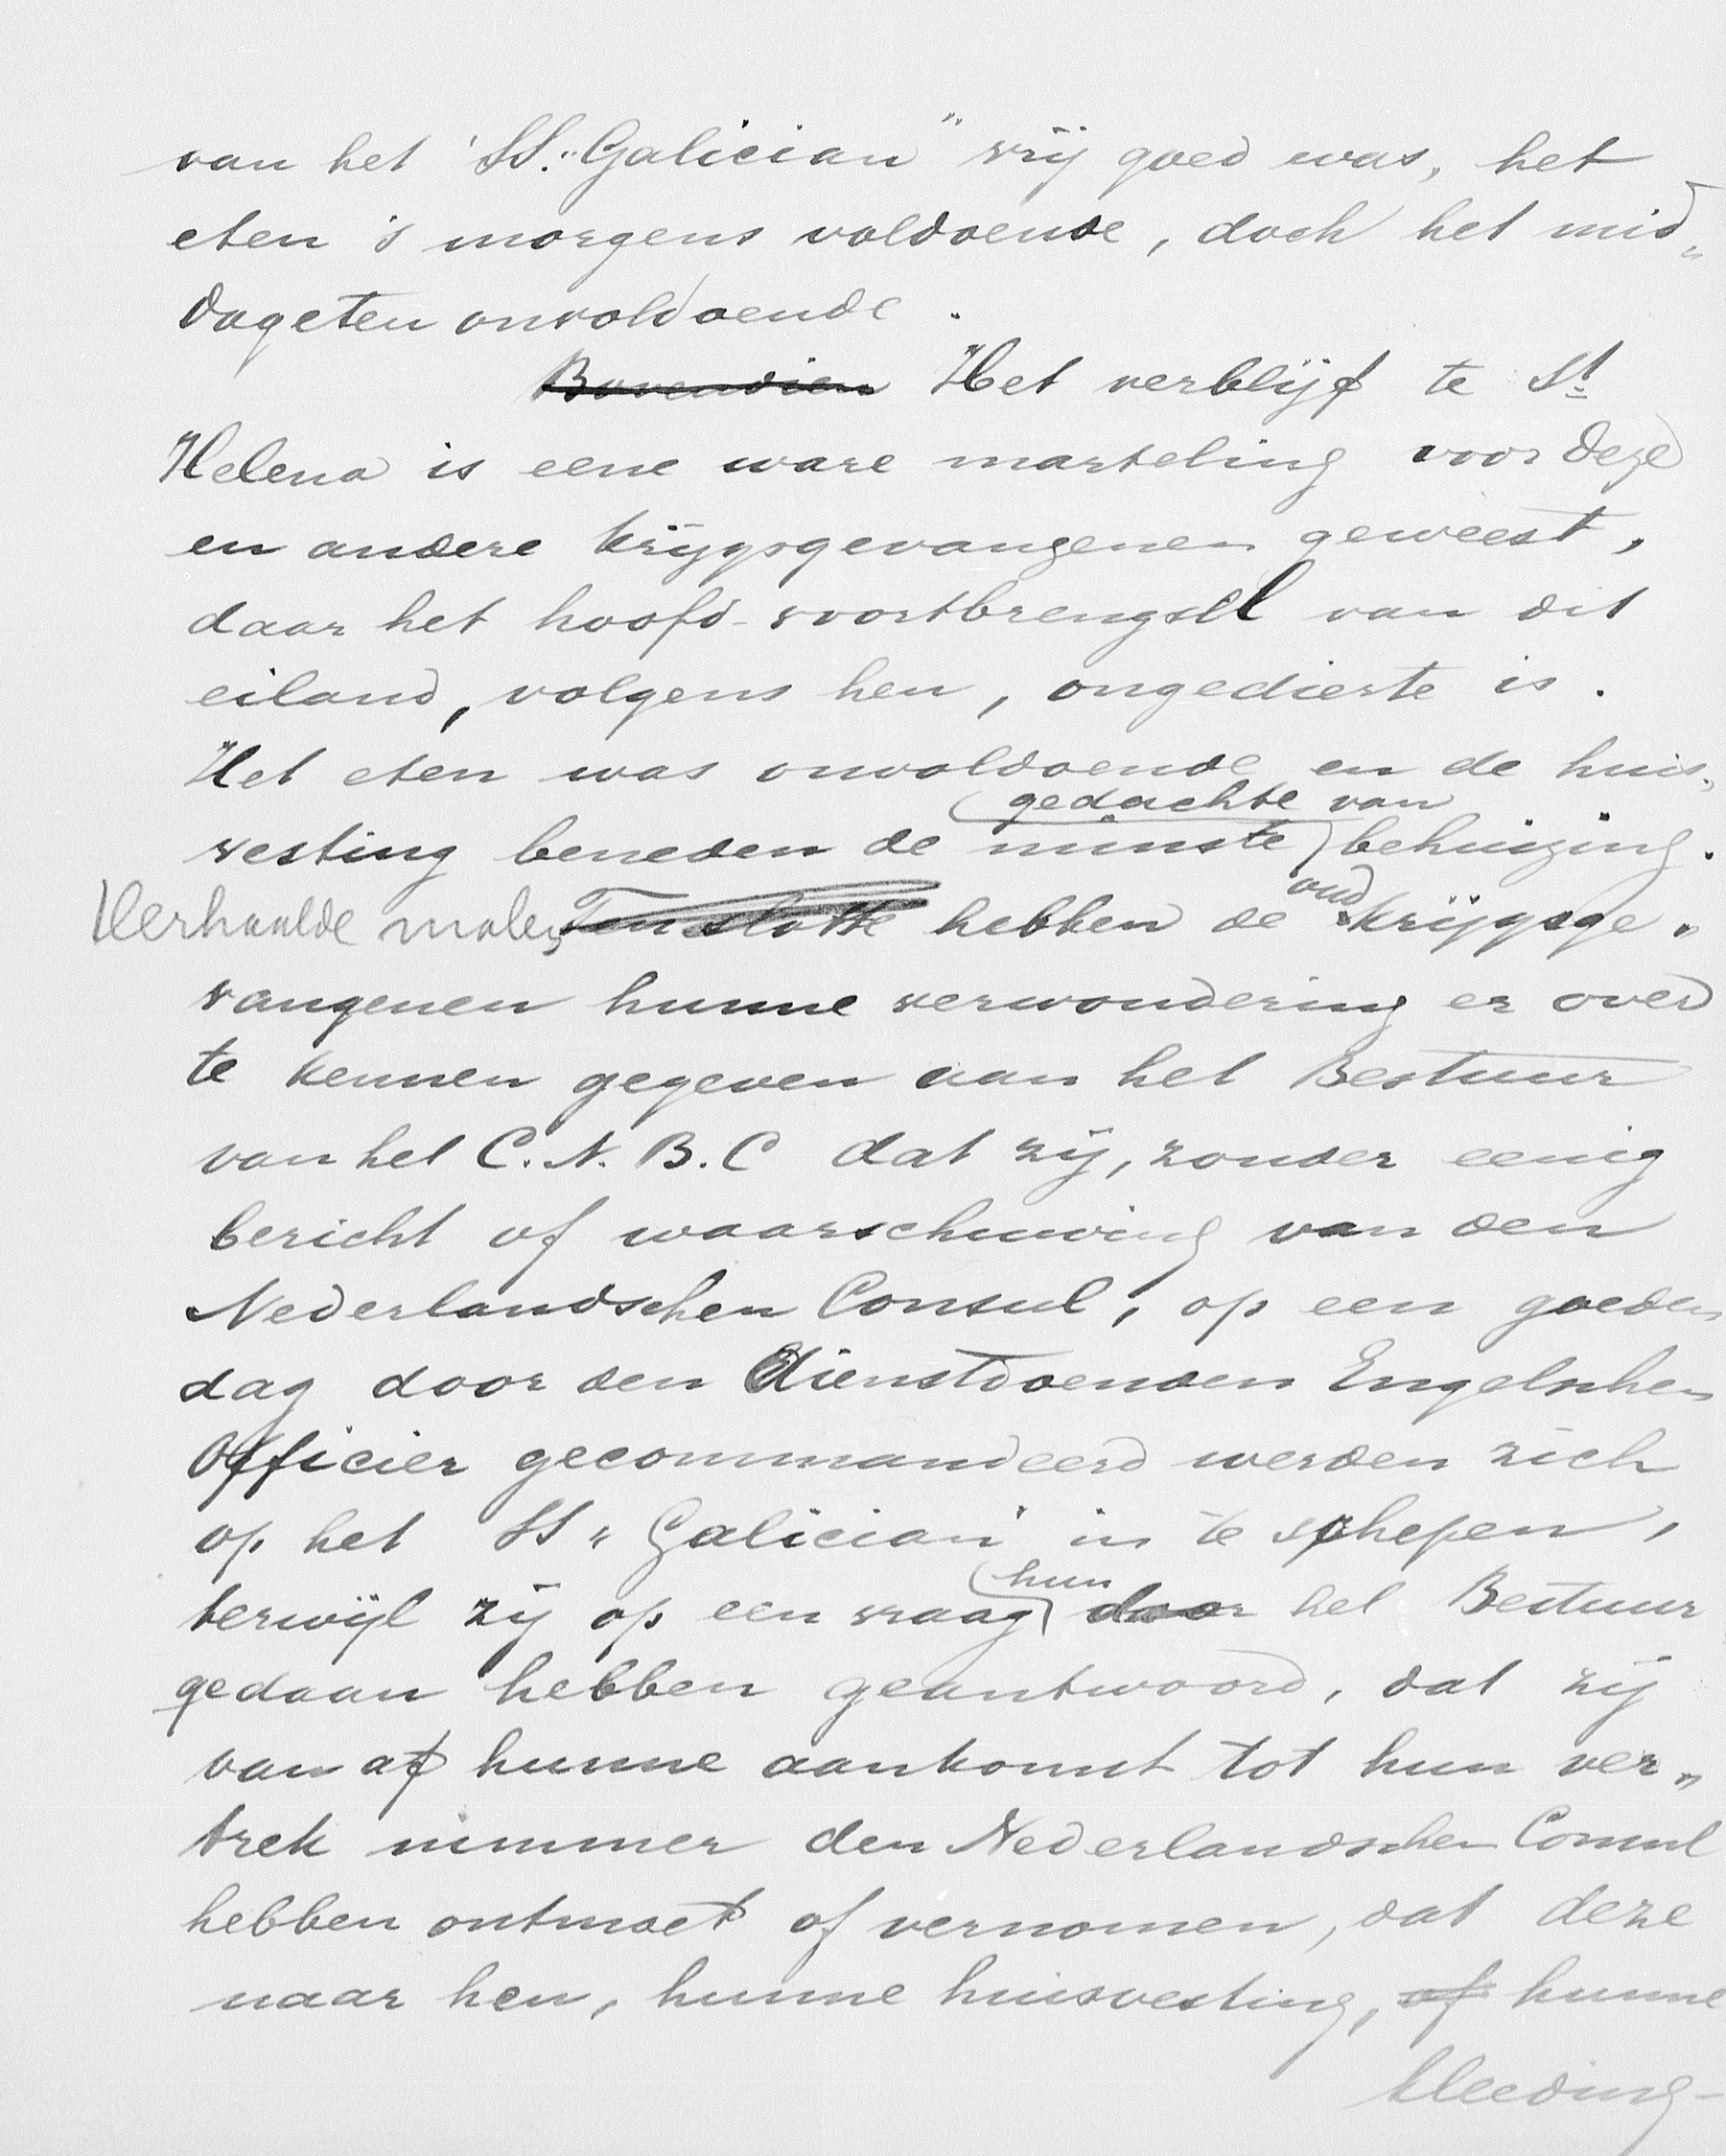 van het 'SS. "Galician" vrij goed was, het
eten 's morgens voldoende, doch het mid„
dageten onvoldoende.
Bovendien Het verblijf te St
Helena is eene ware marteling voor deze
en andere krijgsgevangenen geweest,
daar het hoofd-voortbrengsel van dit
eiland, volgens hen, ongedierte is.
Het eten was onvoldoende en de huis„
gedachte van
vesting beneden de minste behuizing.
oud
Herhaalde malen Ten slotte hebben de krijgsge„
vangenen hunne verwondering er over
te kennen gegeven aan het Bestuur
van het C.N.B.C dat zij, zonder eenig
bericht of waarschuwing van den
Nederlandschen Consul, op een goeden
dag door den dienstdoenden Engelschen
Officier gecommandeerd werden zich
op het SS „Galician" in te schepen,
hun
terwijl zij op een vraag door het Bestuur
gedaan hebben geantwoord, dat zij
van af hunne aankomst tot hun ver„
trek nimmer den Nederlandschen Consul
hebben ontmoet of vernomen, dat deze
naar hen, hunne huisvesting, of hunne
kleeding-